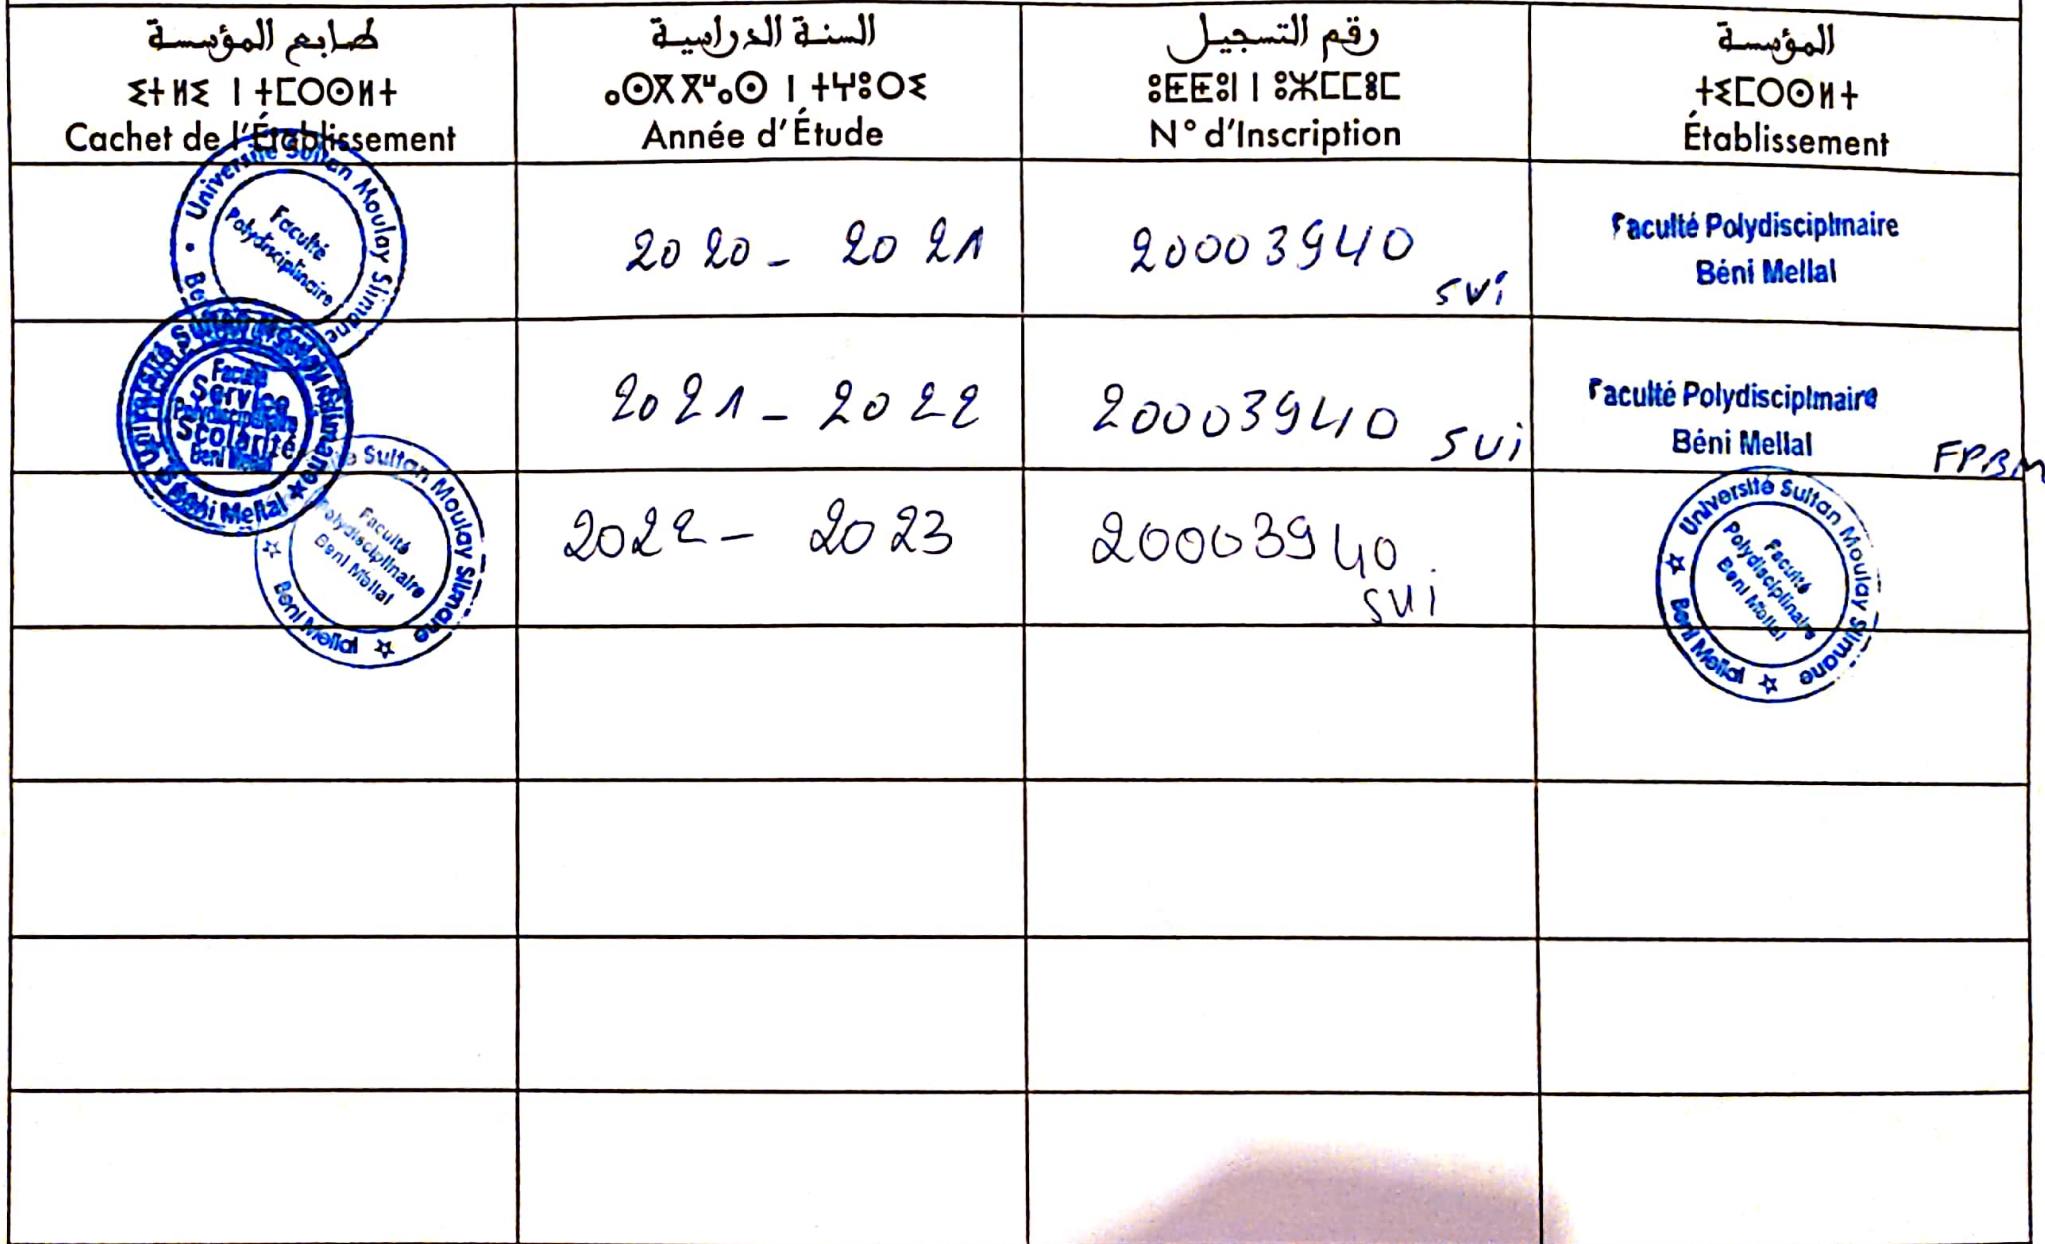 طابع المؤسسة
ⵉⵜⵍⵉ ⵏ ⵜⵎⵔⵙⵍⵜ
Cachet de l'Établissement
السنة الدراسية
ⴰⵙⴳⴳⵯⴰⵙ ⵏ ⵜⵖⵓⵔⵉ
Année d'Étude
رقم التسجيل
ⵓⵟⵟⵓⵏ ⵏ ⵓⵣⵎⵎⵓⵎ
N° d'Inscription
المؤسسة
ⵜⵉⵎⵔⵙⵍⵜ
Établissement
Université Sultan Moulay Slimane
Faculté
Polydisciplinaire
2020 - 2021
20003940
SVI
Faculté Polydisciplinaire
Béni Mellal
Université Sultan Moulay Slimane
Faculté
Service
Polydisciplinaire
Scolarité
Beni Mellal
Beni Mellal
2021 - 2022
20003940
SVI
Faculté Polydisciplinaire
Béni Mellal
FPBM
Sultan Moulay Slimane
Faculté
Polydisciplinaire
Beni Mellal
Beni Mellal
2022 - 2023
20003940
SVI
Université Sultan Moulay Slimane
Faculté
Polydisciplinaire
Beni Mellal
Beni Mellal